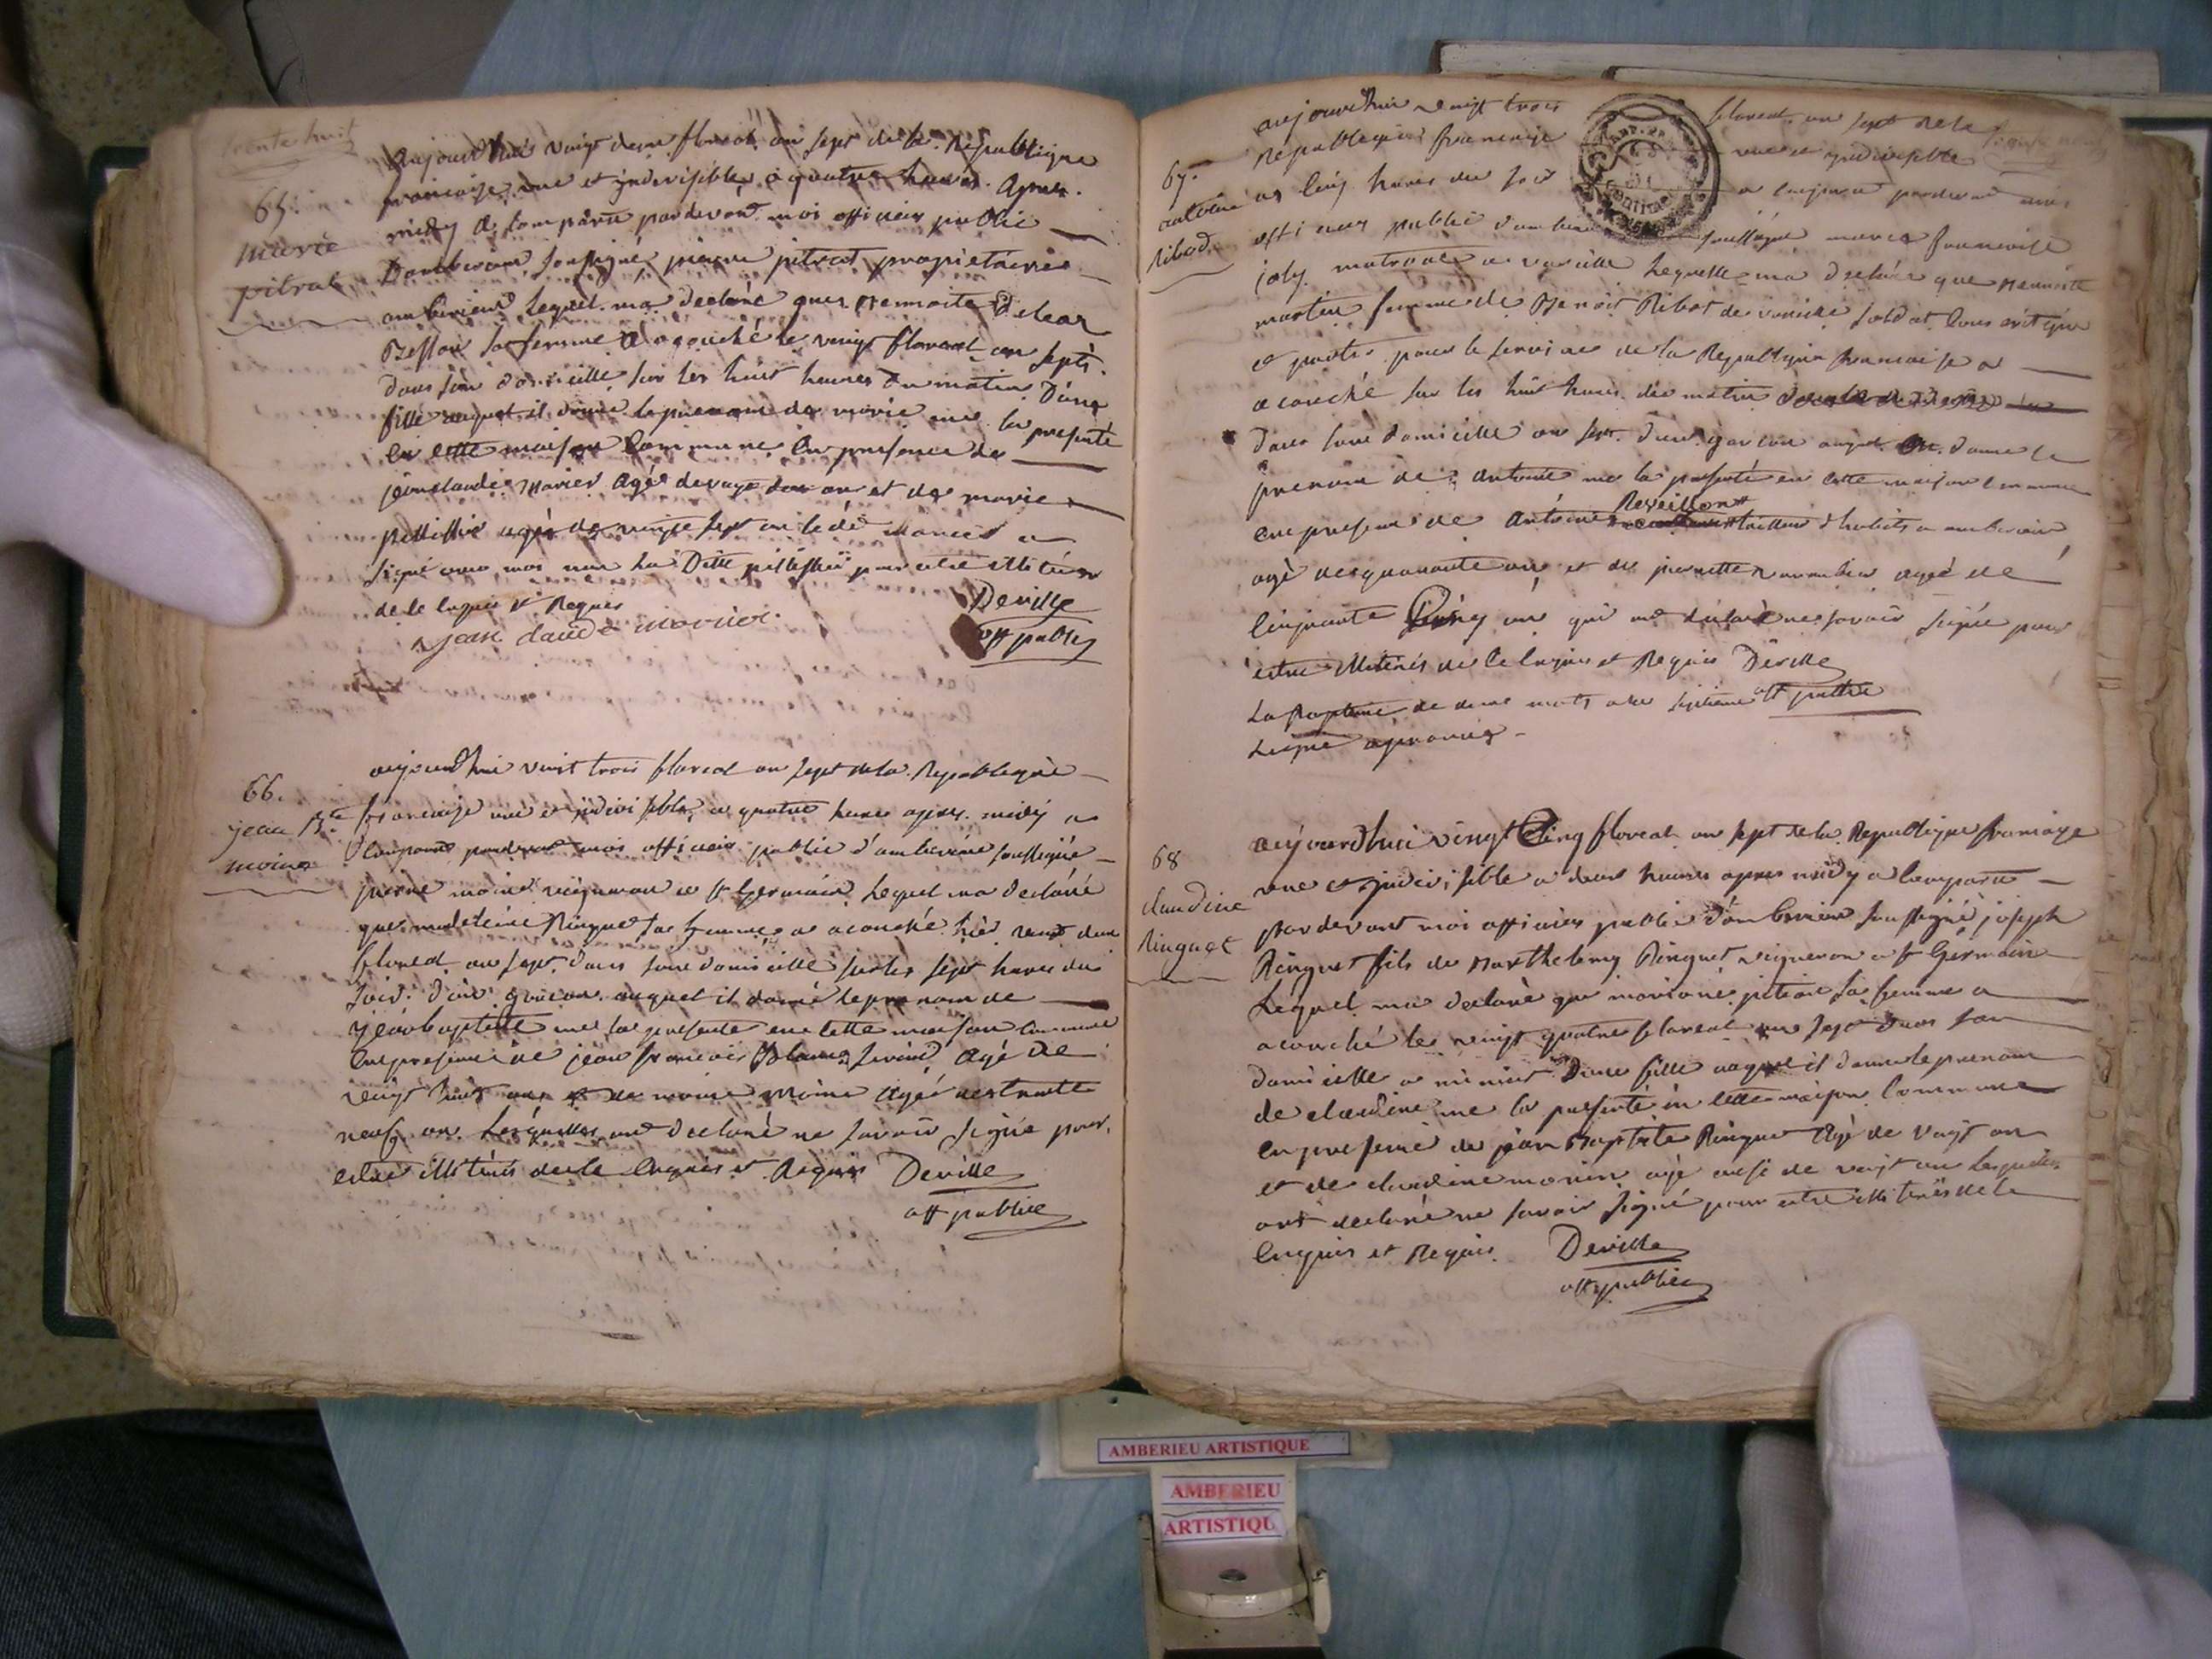 trente huit
65.
marie
pitrat
aujourdhui vingt deux floreal an sept de la Republique
francaise une et indivisible a quatre heures apres
midy a comparu pardevant moi officier public
Damberieu soussigné pierre pitrat propriétaire
amberieu lequel ma declaré que
Besson sa femme a acouché le vingt floreal an sept
dans son domicille sur les huit heures du matin Dune
fille auquel il donné le prenom de marie me la presenté
en cette maison commune en presence de
jean claude marier agé de vingt deux ans et de marie
agée de vingt sept an le dé marier a
signé avec moi non la Ditte pour estre illiterés
de le enquis et Requis
jean claude marier
Deville
off public
66.
jean Bte
moine
aujourdhui vingt trois floreal an sept de la Republique
francaise une et indivisible a quatre heures apres midy a
comparu pardevant moi officier public d'amberieu soussigné
pierre moine vigneron a st Germain lequel ma declaré
que madeleine Ringuet sa femme a acouché hier vingt deux
floreal an sept dans son domicille sur les sept heures du
soir d'un garcon auquel il donné le prenom de
jean baptiste me la presenté en cette maison commune
en presence de jean francois agé de
vingt huit ans et de marie moine agée de trente
neuf an lesquelles ont declaré ne savoir signé pour
estre illiterés de le enquis et Requis Deville
off public
67.
antoine
Ribod
aujourdhui vingt trois floreal an sept de la
Republique francaise une et indivisible
as cinq heures du soir a comparu pardevant moi
officier public damberieu soussigné marie francoise
joly matrone a vareille lequelle ma declaré que Bennoite
martin femme de Benoit Ribot de vareille soldat
et partis pour le service de la Republique francaise a
acouché sur les huit heures du matin
dans son domicille an sept d'un garcon auquel on donne le
prenom de antoine me la presenté en cette maison commune
en presence de antoine Reveillon tailleur d'habits a amberieu
agé de quarante ans et de pierrette agée de
cinquante cinq ans qui ont declaré ne savoir signé pour
estre illiterés de le enquis et Requis Deville
off public
La Rapture de deux mots a la septieme
Ligne aprouvés
68
claudine
Ringuet
aujourdhui vingt Cinq floreal an sept de la Republique francaise
une et indivisible a deux heures apres midy a comparu
pardevant moi officier public d'amberieu soussigné joseph
Ringuet fils de Barthelemy Ringuet vigneron a st Germain
Lequel ma declaré que sa femme a
acouché le vingt quatre floreal an sept dans son
domicille a minuit Dune fille auquel il donne le prenom
de claudine me la presenté en cette maison commune
en presence de jean Baptiste Ringuet agé de vingt an
et de claudine morin agé ausi de vingt an lesquelles
ont declaré ne savoir signé pour estre illiterés de le
enquis et Requis. Deville
off public
AMBERIEU ARTISTIQUE
AMBERIEU
ARTISTIQU